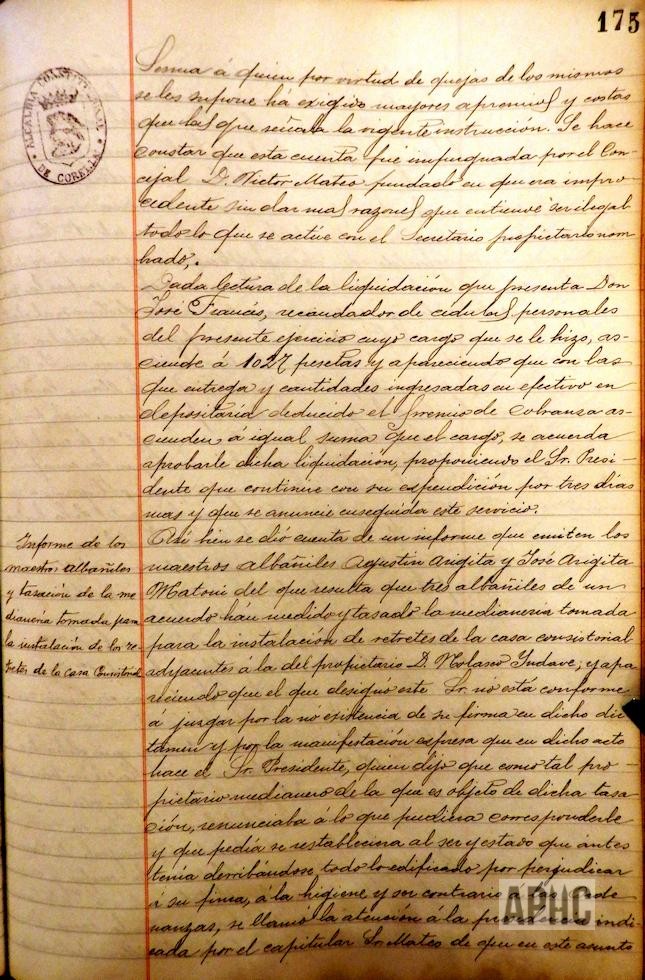 175
ALCALDIA CONSTITUCIONAL
DE CORELLA
á quien por virtud de quejas de los mismos
se les supone há exigido mayores apremios y costas
que las que señala la vigente instrucción. Se hace
constar que esta cuenta fué impugnada por el Con-
cejal D. Victor Mateo fundado en que era impro-
cedente sin dar mas razones que entiende ser ilegal
todo lo que se actúe con el Secretario propietario nom
brado.
Dada lectura de la liquidación que presenta Don
José Francés, recaudador de cedulas personales
del presente ejercicio cuyo cargo que se le hizo, as-
ciende á 1027 pesetas y apareciendo que con las
que entrega y cantidades ingresadas en efectivo en
depositaría deducido el premio de cobranza as-
cienden á igual suma que el cargo, se acuerda
aprobarle dicha liquidación, proponiendo el Sr. Presi-
dente que continúe con su expendición por tres días
mas y que se anuncie enseguida este servicio.
Informe de los
maestros albañiles
y tasación de la me
dianería tomada para
la instalación de los re
tretes de la casa Consistorial
Así bien se dió cuenta de un informe que emiten los
maestros albañiles Agustin Arigita y José Arigita
Matoni del que resulta que tres albañiles de un
acuerdo hán medido y tasado la medianería tomada
para la instalación de retretes de la casa consistorial
adyacentes á la del propietario D. Nolasco Yndave; y apa
reciendo que el que designó este Sr. no está conforme
a juzgar por la no existencia de su firma en dicho dic
tamen y por la manifestación expresa que en dicho acto
hace el Sr. Presidente, quien dijo que como tal pro-
pietario medianero de la que es objeto de dicha tasa
ción, renunciaba á lo que pudiera corresponderle
y que pedía se restableciera al ser y estado que antes
tenía derribándose todo lo edificado por perjudicar
á su finca, á la higiene y ser contrario
nanzas, se llamó la atención á la indi-
cada por el capitular Sr. Mateo de que en este asunto
APHC